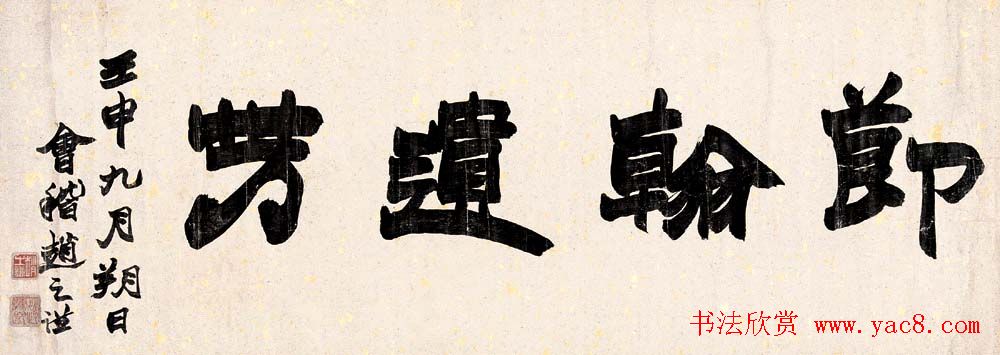 節翰遺芳
壬申九月朔日
會稽趙之謙
书法欣赏 www.yac8.com